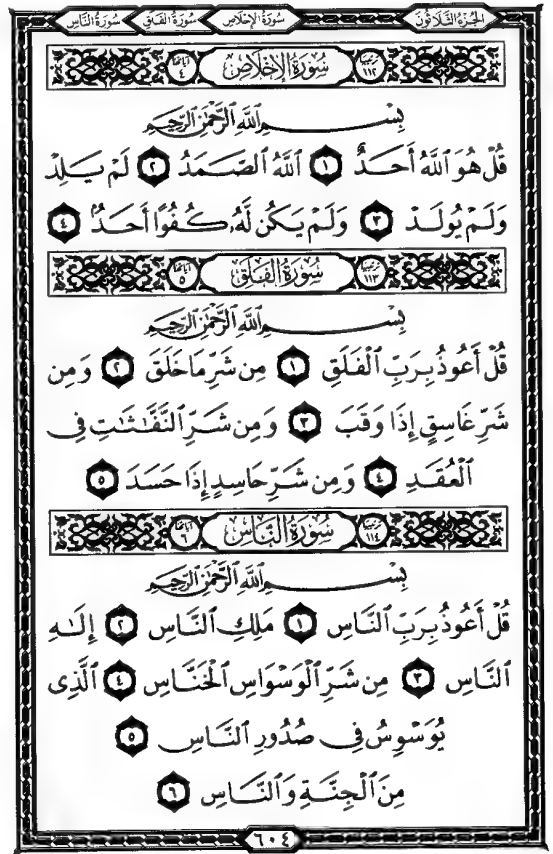 الجزء الثلاثون سورة الإخلاص سورة الفلق سورة الناس
ترتيبها ١١٢ سُورَةُ الإِخْلَاصِ آياتها ٤
بِسْمِ اللَّهِ الرَّحْمَٰنِ الرَّحِيمِ
قُلْ هُوَ ٱللَّهُ أَحَدٌ ١ ٱللَّهُ ٱلصَّمَدُ ٢ لَمْ يَلِدْ
وَلَمْ يُولَدْ ٣ وَلَمْ يَكُن لَّهُۥ كُفُوًا أَحَدٌۢ ٤
ترتيبها ١١٣ سُورَةُ الفَلَقِ آياتها ٥
بِسْمِ اللَّهِ الرَّحْمَٰنِ الرَّحِيمِ
قُلْ أَعُوذُ بِرَبِّ ٱلْفَلَقِ ١ مِن شَرِّ مَا خَلَقَ ٢ وَمِن
شَرِّ غَاسِقٍ إِذَا وَقَبَ ٣ وَمِن شَرِّ ٱلنَّفَّٰثَٰتِ فِى
ٱلْعُقَدِ ٤ وَمِن شَرِّ حَاسِدٍ إِذَا حَسَدَ ٥
ترتيبها ١١٤ سُورَةُ النَّاسِ آياتها ٦
بِسْمِ اللَّهِ الرَّحْمَٰنِ الرَّحِيمِ
قُلْ أَعُوذُ بِرَبِّ ٱلنَّاسِ ١ مَلِكِ ٱلنَّاسِ ٢ إِلَٰهِ
ٱلنَّاسِ ٣ مِن شَرِّ ٱلْوَسْوَاسِ ٱلْخَنَّاسِ ٤ ٱلَّذِى
يُوَسْوِسُ فِى صُدُورِ ٱلنَّاسِ ٥
مِنَ ٱلْجِنَّةِ وَٱلنَّاسِ ٦
٦٠٤